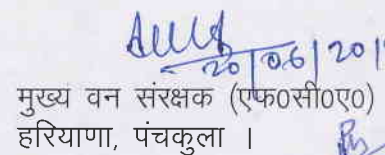 20/06/201
मुख्य वन संरक्षक (एफ0सी0ए0)
हरियाणा, पंचकुला ।